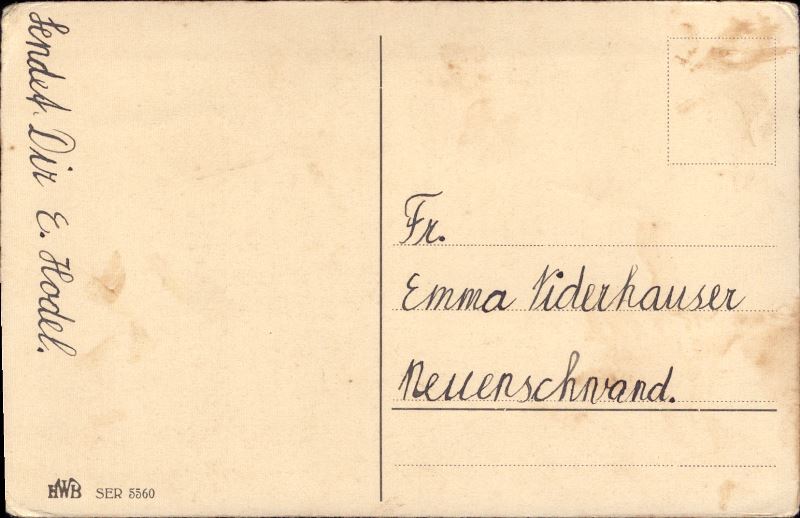 Sendet Dir E. Hodel.
Fr.
Emma Niderhauser
Neuenschwand.
HWB SER 5560